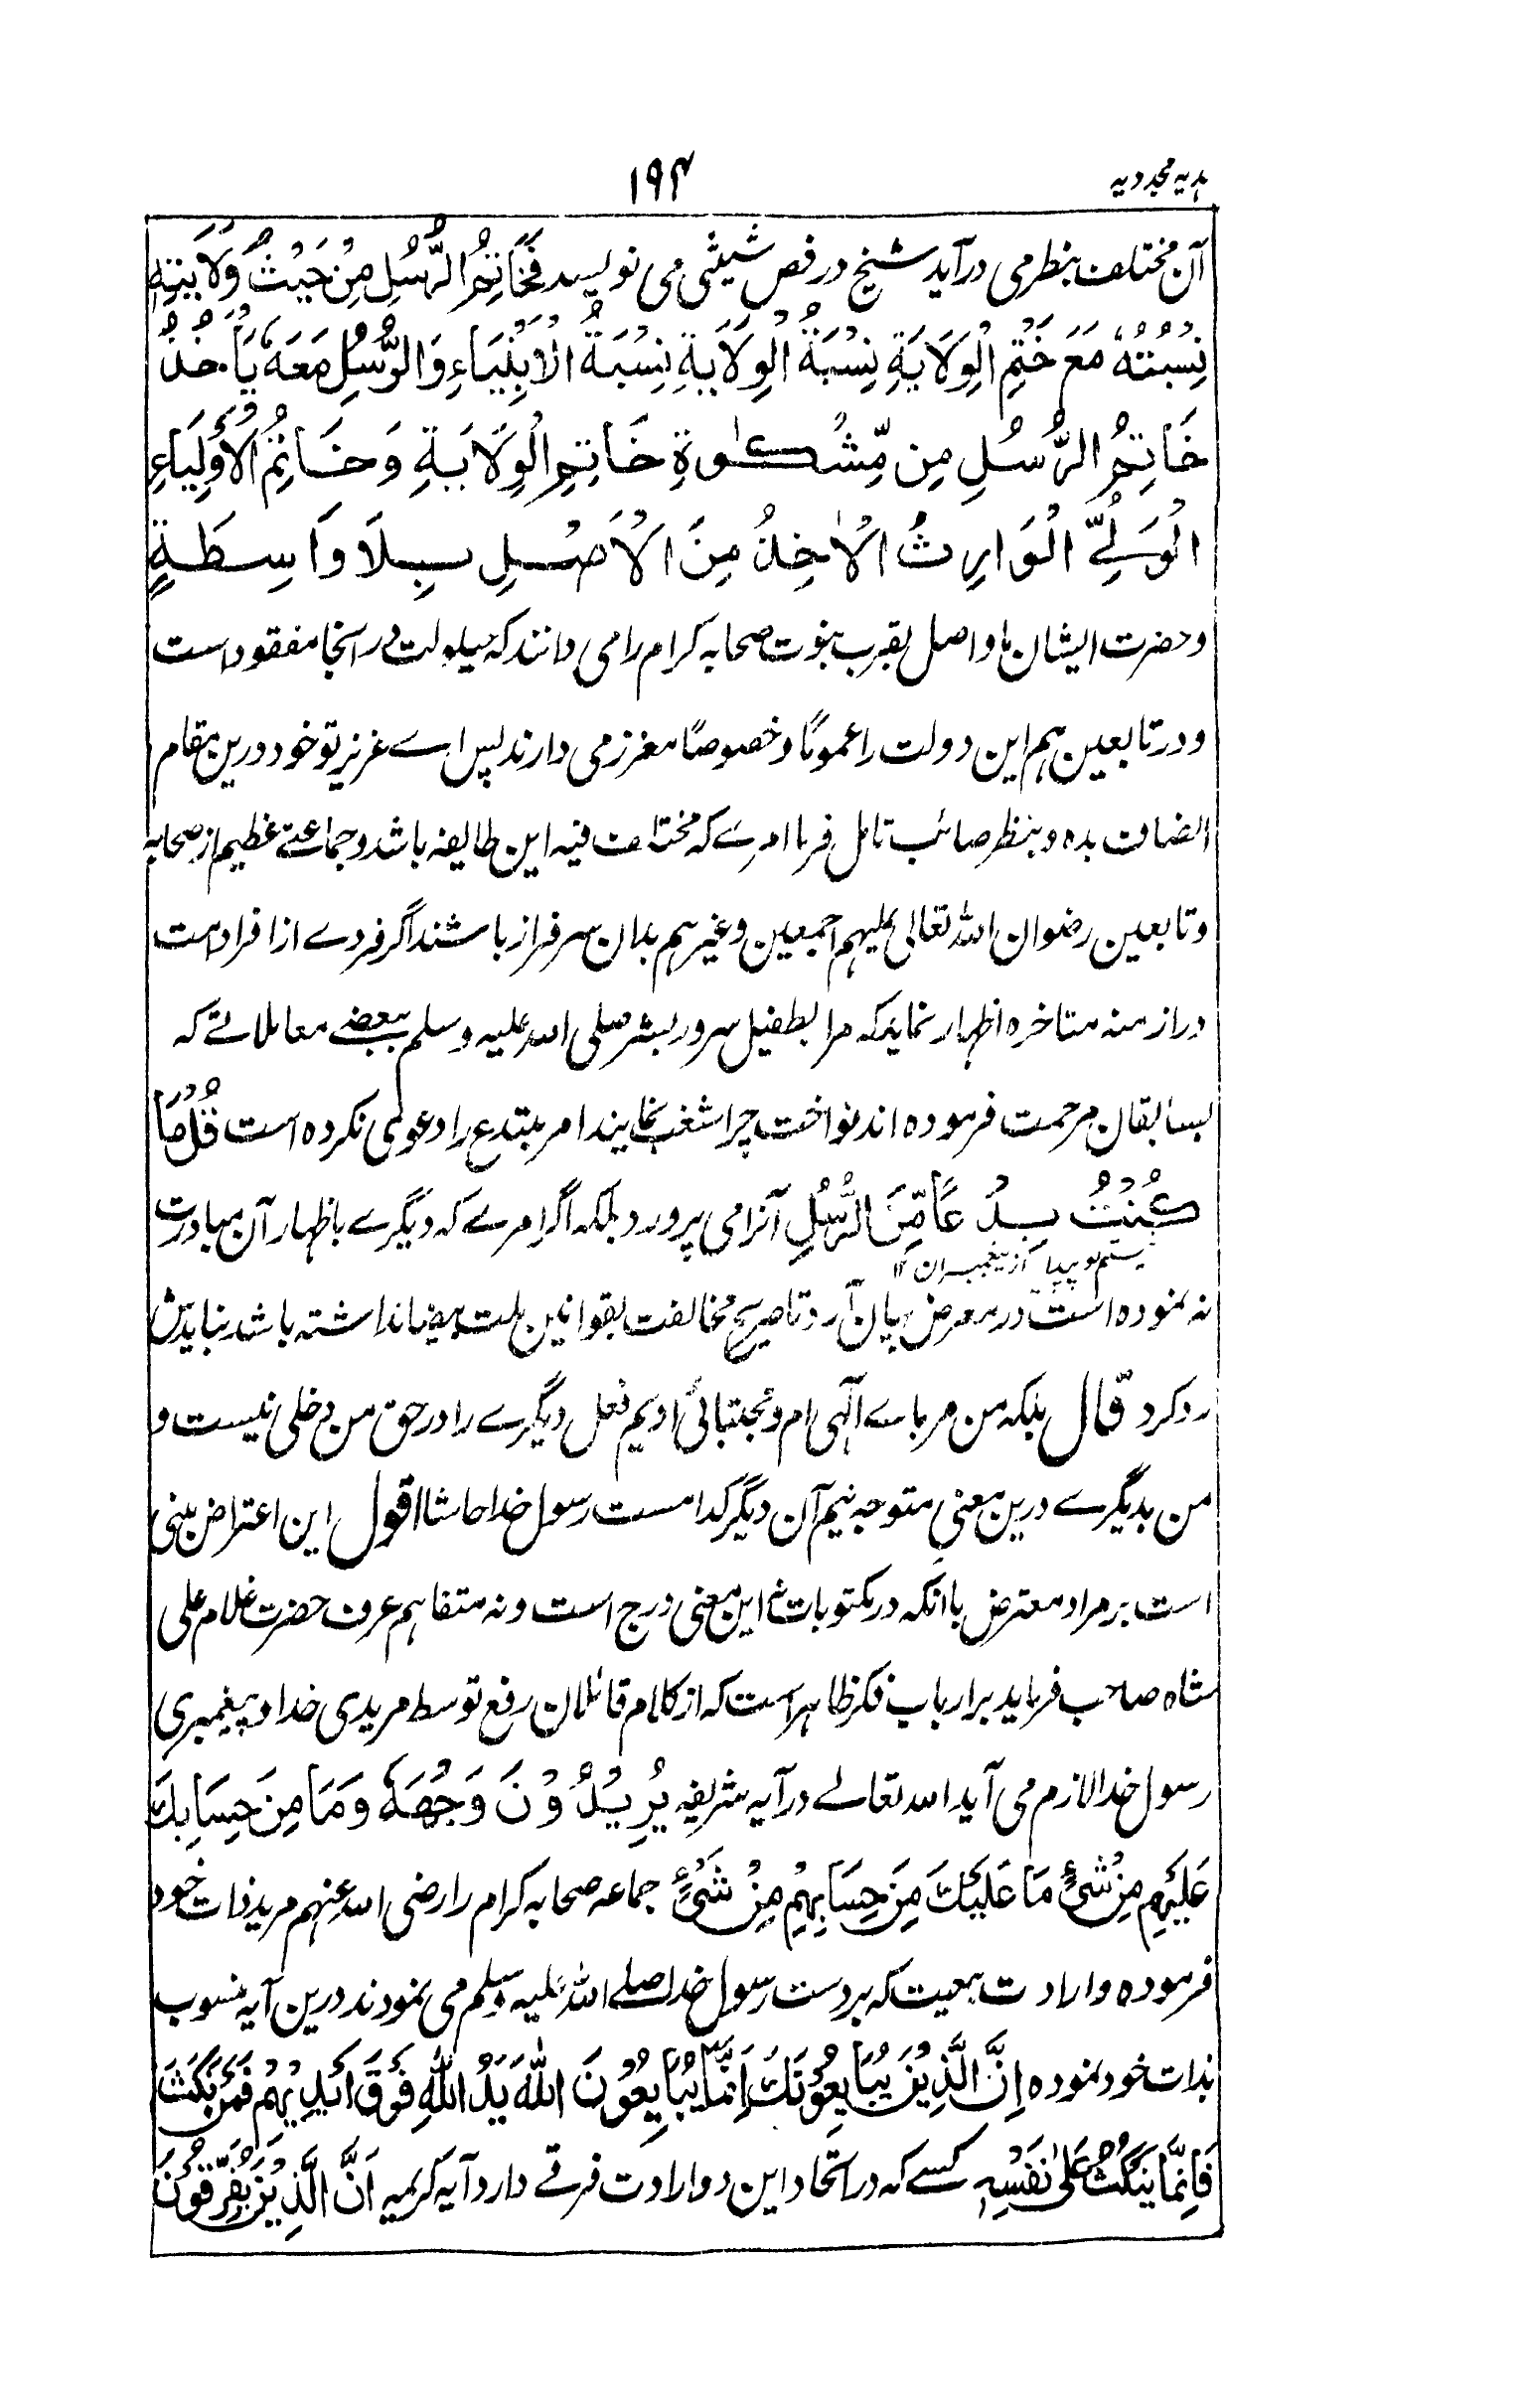 ہدیہ مجددیہ
۱۹۴
آن مختلف بنظر می درآید شیخ در فص شیثی می نویسد فَخَاتِمُ الرُّسُلِ مِنْ حَيْثُ وَلَايَتِهٖ
نِسْبَتُهٗ مَعَ خَتْمِ الْوِلَايَةِ نِسْبَةُ الْوِلَايَةِ نِسْبَةُ الْاَنْبِيَاءِ وَالرُّسُلِ مَعَهٗ يَأْخُذُ
خَاتِمُ الرُّسُلِ مِن مِّشْكٰوةِ خَاتِمِ الْوِلَايَةِ وَخَاتِمُ الْاَوْلِيَاءِ
الْوَلِيُّ الْوَارِثُ الْاٰخِذُ مِنَ الْاَصْلِ بِلَا وَاسِطَةٍ
وحضرت ایشان ما واصل بقرب نبوت صحابہ کرام را می دانند کہ حیلولت در اینجا مفقود است
ودر تابعین ہم این دولت را عموماً وخصوصاً معزز می دارند پس اے عزیز تو خود درین مقام
انصاف بدہ وبنظر صائب تامل فرما امرے کہ مختلف فیہ این طایفہ باشد وجماعتے عظیم از صحابہ
وتابعین رضوان اللہ تعالی علیہم اجمعین وغیرہم بدان سرفراز باشند اگر فردے از افراد امت
در ازمنہ متاخرہ اظہار نماید کہ مرا بطفیل سرور بشر صلی اللہ علیہ وسلم ببعضے معاملاتے کہ
بسابقان مرحمت فرمودہ اند نواخت چرا شغب نمایند امر مبتدع را دعوی نکردہ است قُلْ مَا
كُنْتُ بِدْعًا مِّنَ الرُّسُلِ آنرا می پرورد بلکہ اگر امرے کہ دیگرے باظہار آن مبادرت
نیستم نو پیدا از پیغمبران ۱۲
نہ نمودہ است در معرض بیان آرد تا صریح مخالفت بقوانین ملت بیضا نداشتہ باشد نبایدش
رد کرد قال بلکہ من مرباے آلہی ام ومجتبائی اویم فعل دیگرے را در حق من دخلی نیست و
من بدیگرے درین معنی متوجہ نیم آن دیگر کدامست رسول خدا حاشا اقول این اعتراض مبنی
است بر مراد معترض باآنکہ در مکتوبات نہ این معنی درج است ونہ متفاہم عرف حضرت غلام علی
شاہ صاحب فرماید بر ارباب فکر ظاہر است کہ از کلام قائلان رفع توسط مریدی خدا وپیغمبری
رسول خدا لازم می آید اللہ تعالے در آیہ شریفہ يُرِيْدُوْنَ وَجْهَهٗ وَمَا مِنَ حِسَابِكَ
عَلَيْهِم مِنْ شَیْءٍ مَا عَلَيْكَ مِنَ حِسَابِهِمْ مِنْ شَیْءٍ جماعہ صحابہ کرام را رضی اللہ عنہم مرید ذات خود
فرمودہ وارادت بیعت کہ بر دست رسول خدا صلے اللہ علیہ وسلم می نمودند درین آیہ منسوب
بذات خود نمودہ اِنَّ الَّذِيْنَ يُبَايِعُوْنَكَ اِنَّمَا يُبَايِعُوْنَ اللّٰهَ يَدُ اللّٰهِ فَوْقَ اَيْدِيْهِمْ فَمَنْ نَكَثَ
فَاِنَّمَا يَنْكُثُ عَلٰى نَفْسِهٖ کسے کہ در اتحاد این دو ارادت فرقے دارد آیہ کریمہ اَنَّ الَّذِيْنَ يُفَرِّقُوْنَ